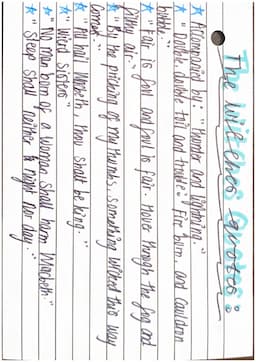 The witches quotes:
Accompanied by: "thunder and lightning."
"Double, double toil and trouble: Fire burn, and cauldron
bubble."
"Fair is foul and foul is fair. Hover through the fog and
filthy air."
"By the pricking of my thumbs, something wicked this way
comes."
"All hail Macbeth, thou shalt be king."
"Weird sisters"
"No man born of a woman shall harm Macbeth."
"Sleep shall neither night nor day."